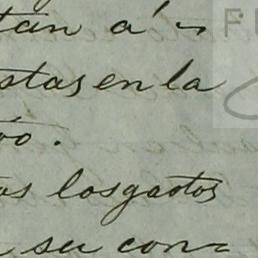 tan a
stas en la
os los gastos
su con=